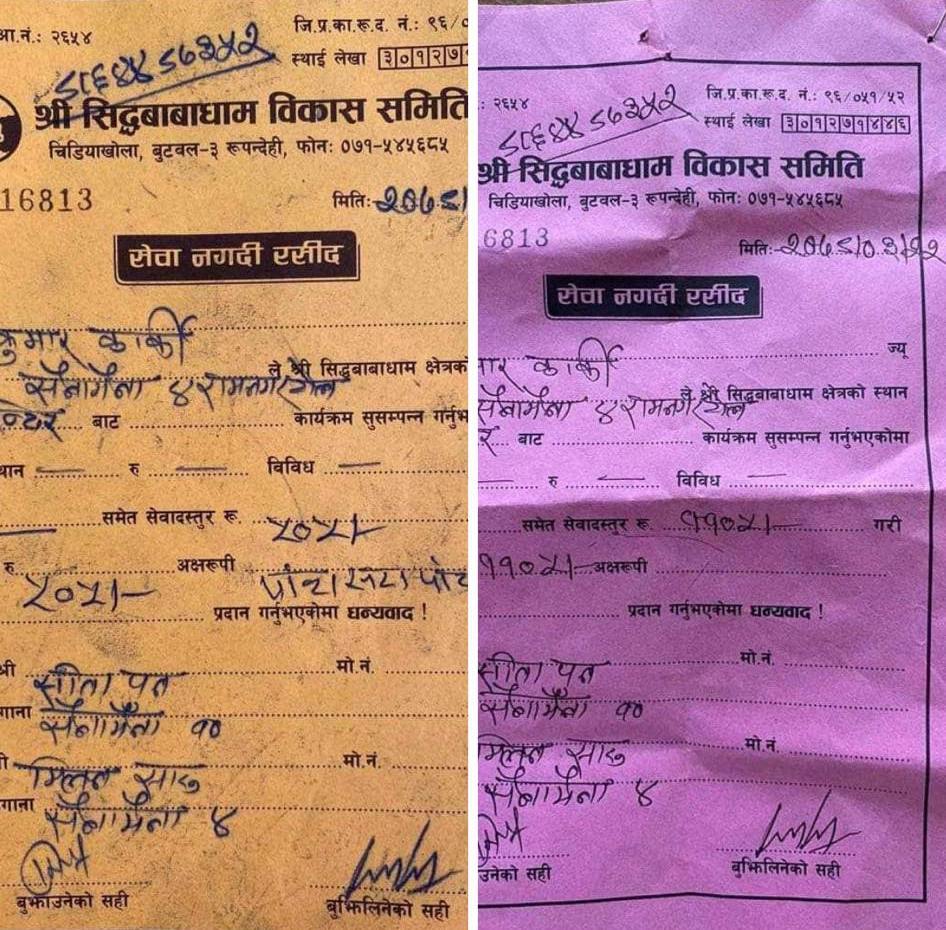 आ.नं.: २६५४
जि.प्र.का.रू.द. नं.: ९६/०
९८६४४८७३५२
स्थाई लेखा ३०१२७
श्री सिद्धबाबाधाम विकास समिति
चिडियाखोला, बुटवल-३ रूपन्देही, फोन: ०७१-५४५६८५
16813
मिति:-२०७८।
सेवा नगदी रसीद
कुमार कार्की
ले श्री सिद्धबाबाधाम क्षेत्रक
सैनामैना ४ रामनगर
बाट कार्यक्रम सुसम्पन्न गर्नुभ
थान रु विविध
समेत सेवादस्तुर रू. ५०५।-
रु. ५०५।- अक्षरूपी पाँच सय पाँच
प्रदान गर्नुभएकोमा धन्यवाद !
श्री सीता पन्त मो.नं.
गाना सैनामैना १०
मिलन सारु मो.नं.
गाना सैनामैना ४
बुझाउनेको सही बुझिलिनेको सही
: २६५४
जि.प्र.का.रू.द. नं.: ९६/०५१/५२
९८६४४८७३५२
स्थाई लेखा ३०१२७१४४६
श्री सिद्धबाबाधाम विकास समिति
चिडियाखोला, बुटवल-३ रूपन्देही, फोन: ०७१-५४५६८५
6813
मिति:-२०७८।०३।२२
सेवा नगदी रसीद
मार कार्की ज्यू
ले श्री सिद्धबाबाधाम क्षेत्रको स्थान
सैनामैना ४ रामनगर
बाट कार्यक्रम सुसम्पन्न गर्नुभएकोमा
रु विविध
समेत सेवादस्तुर रू. ११०५।- गरी
११०५।- अक्षरूपी
प्रदान गर्नुभएकोमा धन्यवाद !
सीता पन्त मो.नं.
सैनामैना १०
मिलन सारु मो.नं.
सैनामैना ४
उनेको सही बुझिलिनेको सही